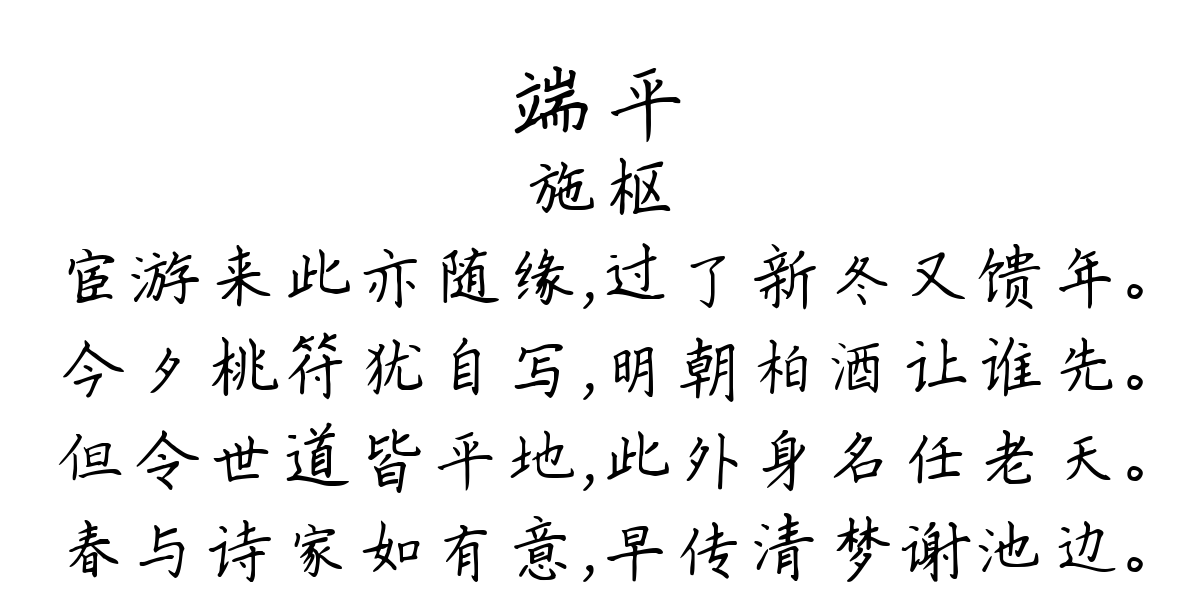 端平
施枢
宦游来此亦随缘,过了新冬又馈年。
今夕桃符犹自写,明朝柏酒让谁先。
但令世道皆平地,此外身名任老天。
春与诗家如有意,早传清梦谢池边。